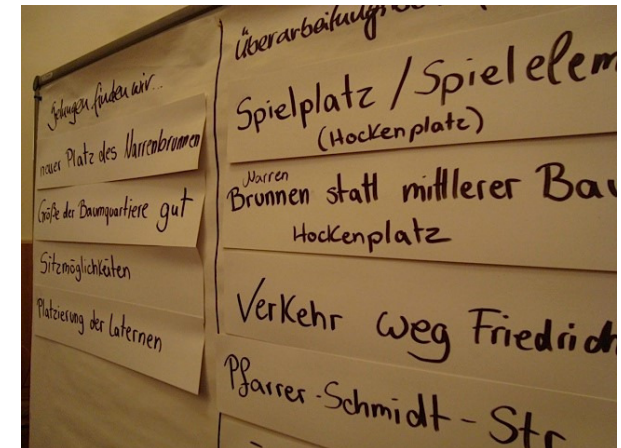 Gelungen finden wir...
neuer Platz des Narrenbrunnen
Größe der Baumquartiere gut
Sitzmöglichkeiten
Platzierung der Laternen
Spielplatz / Spielelem
(Hockenplatz)
Narren
Brunnen statt mittlerer Bau
Hockenplatz
Verkehr weg Friedrich
Pfarrer-Schmidt-Str